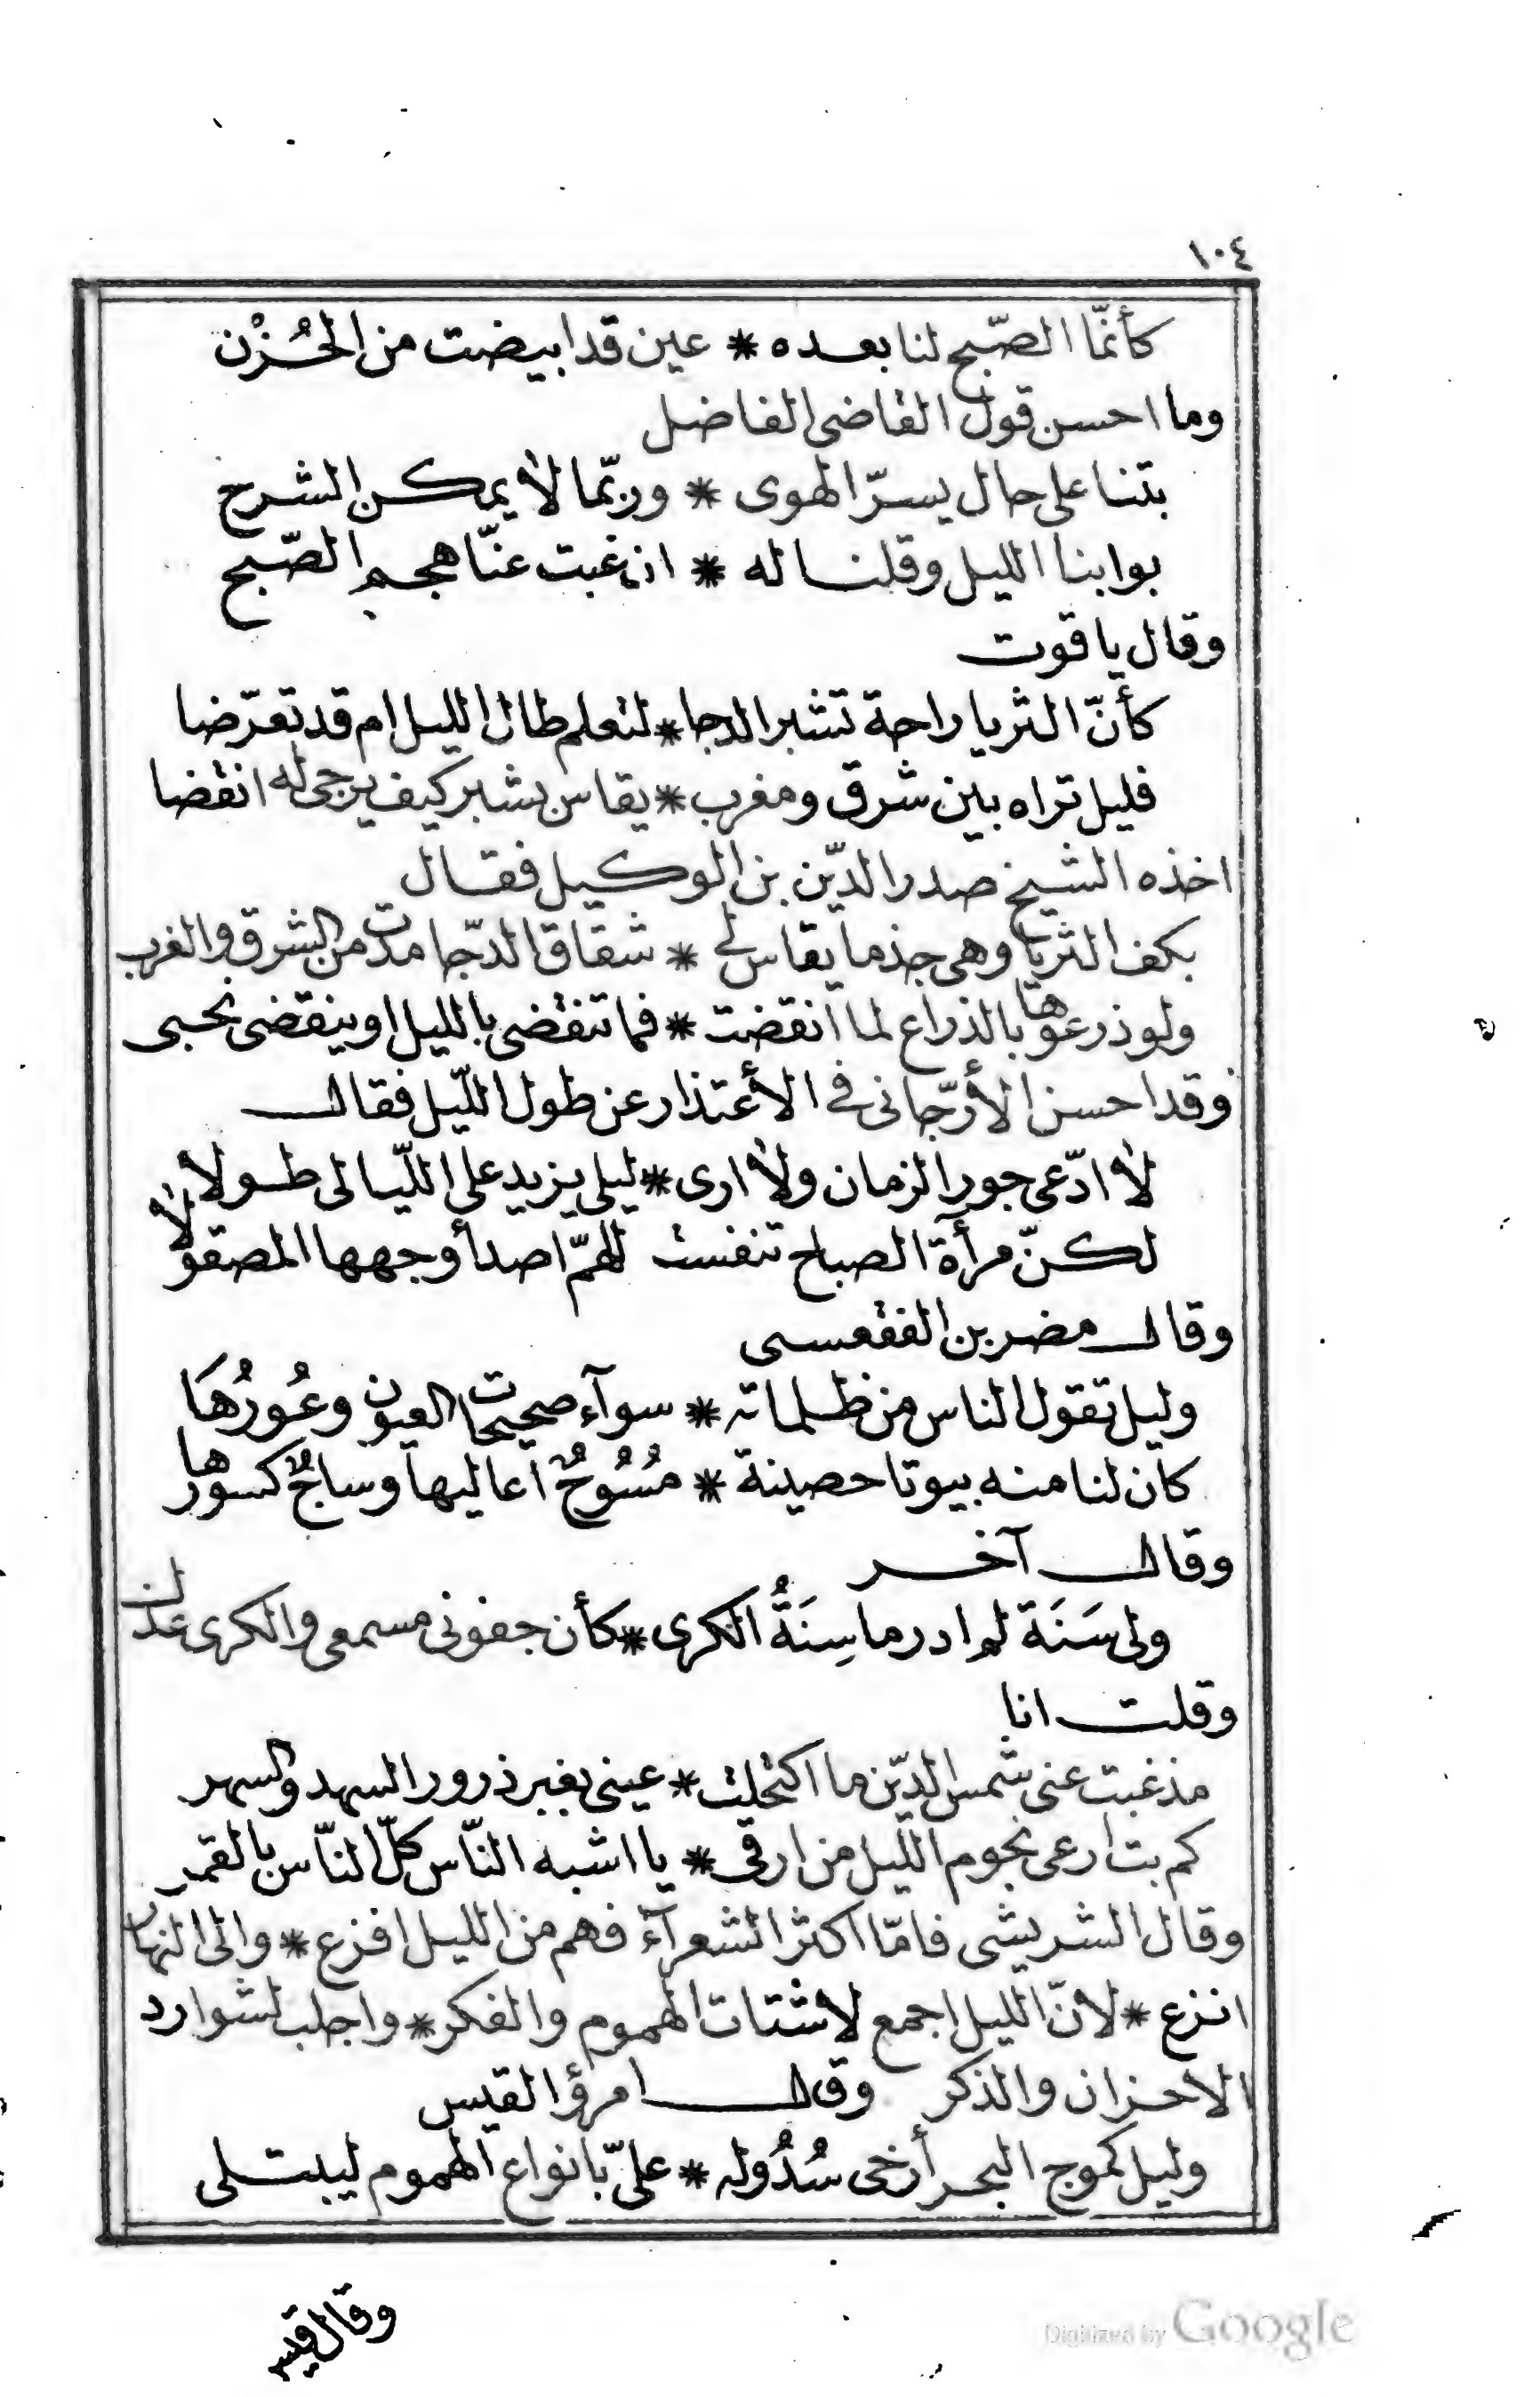 ١٠٤
كأنّما الصّبح لنا بعده * عين قد ابيضت من الحُزْن
وما احسن قول القاضى الفاضل
بتنا على حال يسرّ الهوى * وربّما لا يمكن الشرح
بوابنا الليل وقلنا له * ان غبت عنّا هجم الصّبح
وقال ياقوت
كأنّ الثريا راحة تشبر الدجا * لتعلم طال الليل ام قد تعرّضا
فليل تراه بين شرق ومغرب * يقاس بشبر كيف يرجى له انقضا
اخذه الشيخ صدر الدّين بن الوكيل فقال
بكف الثريّا وهى جذما يقاس لى * شقاق الدّجا مدت من الشرق والغرب
ولو ذرعوها بالذراع لما انقضت * فما تنقضى بالليل او ينقضى نحبى
وقد احسن الأرّجانى فى الأعتذار عن طول اللّيل فقال
لا ادّعى جور الزمان ولا ارى * ليلى يزيد على اللّيالى طولا
لكنّ مرأة الصباح تنفست للهمّ اصدأ وجهها المصقولا
وقال مضر بن الفقعسى
وليل تقول الناس من ظلماته * سوآء صحيحات العيون وعُورُهَا
كان لنا منه بيوتا حصينة * مُسُوحٌ اعاليها وساجٌ كسورها
وقال آخر
ولى سَنَة لم ادر ما سِنَةُ الكرى * كأن جفونى مسمعى والكرى عذل
وقلت انا
مذ غبت عنى شمس الدّين ما اكتحلت * عينى بغير ذرور السهد والسهر
كم بت ارعى نجوم اللّيل من ارقى * يا اشبه النّاس كلّ النّاس بالقمر
وقال الشريشى فامّا اكثر الشعرآء فهم من الليل افزع * والى النهار
انزع * لانّ الليل اجمع لاشتات الهموم والفكر * واجلب لشوارد
الاحزان والذكر وقال امرؤ القيس
وليل كموج البحر أرخى سُدُوله * علىّ بانواع الهموم ليبتلى
وقال قيس
Digitized by Google